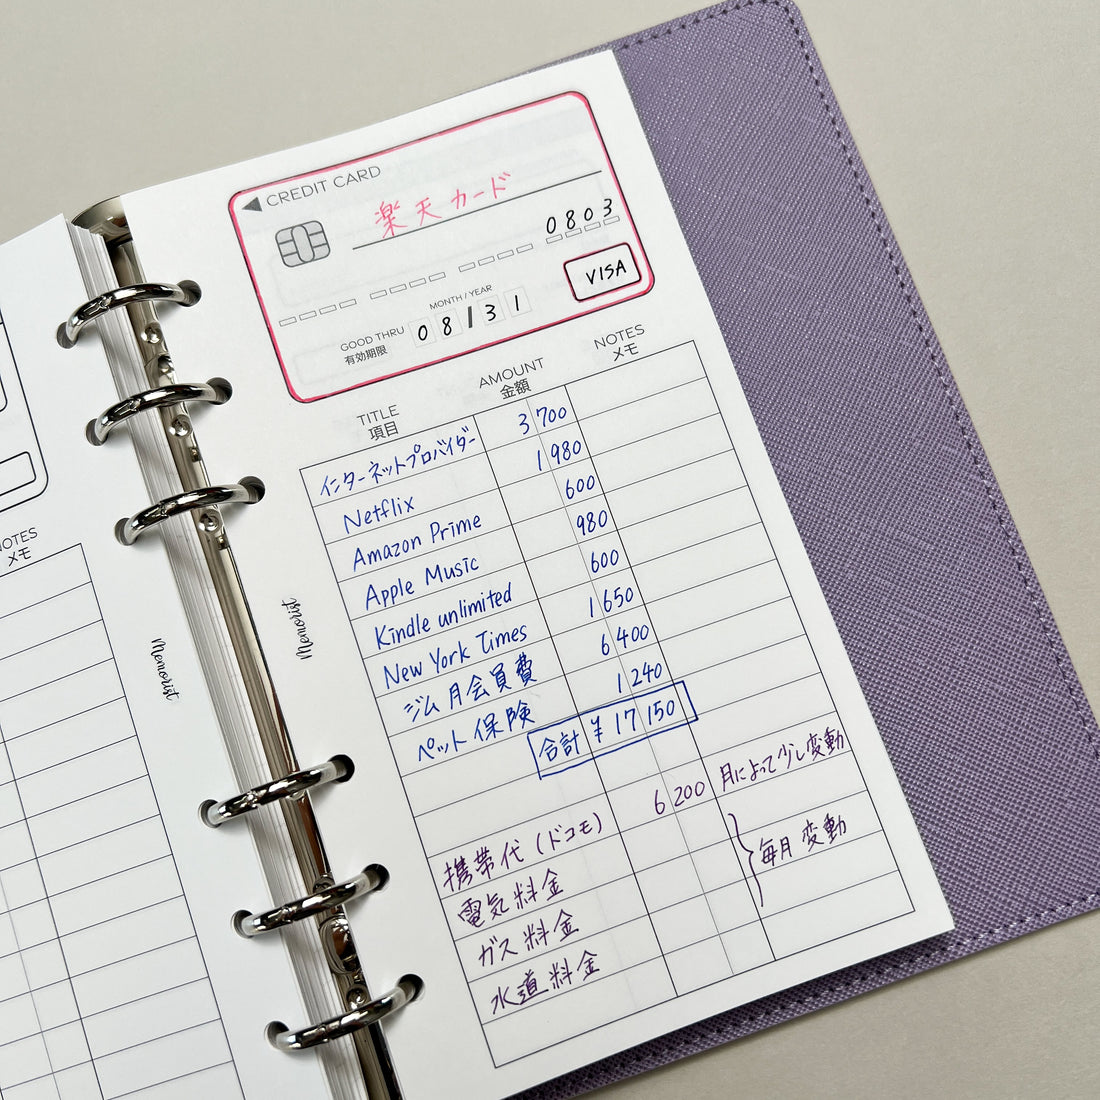 CREDIT CARD
楽天カード
0803
VISA
MONTH / YEAR
GOOD THRU 08/31
有効期限
TITLE AMOUNT NOTES
項目 金額 メモ
インターネットプロバイダー 3700
Netflix 1980
Amazon Prime 600
Apple Music 980
Kindle unlimited 600
New York Times 1650
ジム月会員費 6400
ペット保険 1240
合計 ¥17150
携帯代(ドコモ) 6200 月によって少し変動
電気料金
ガス料金 毎月変動
水道料金
Memorist
Memorist
NOTES
メモ